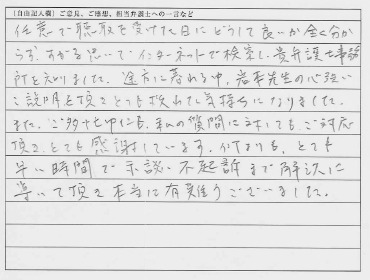 ［自由記入欄］ご意見、ご感想、担当弁護士への一言など
任意で聴取を受けた日にどうして良いか全く分か
らず、すがる思いでインターネットで検索し、貴弁護士事務
所をえらびました。途方に暮れる中、岩本先生の心強い
ご説明を頂きとても救われた気持ちになりました。
また、ご多忙中にも、私の質問に対しても、ご対応
頂き、とても感謝しています。なによりも、とても
早い時間で示談、不起訴まで解決に
導いて頂き本当に有難うございました。